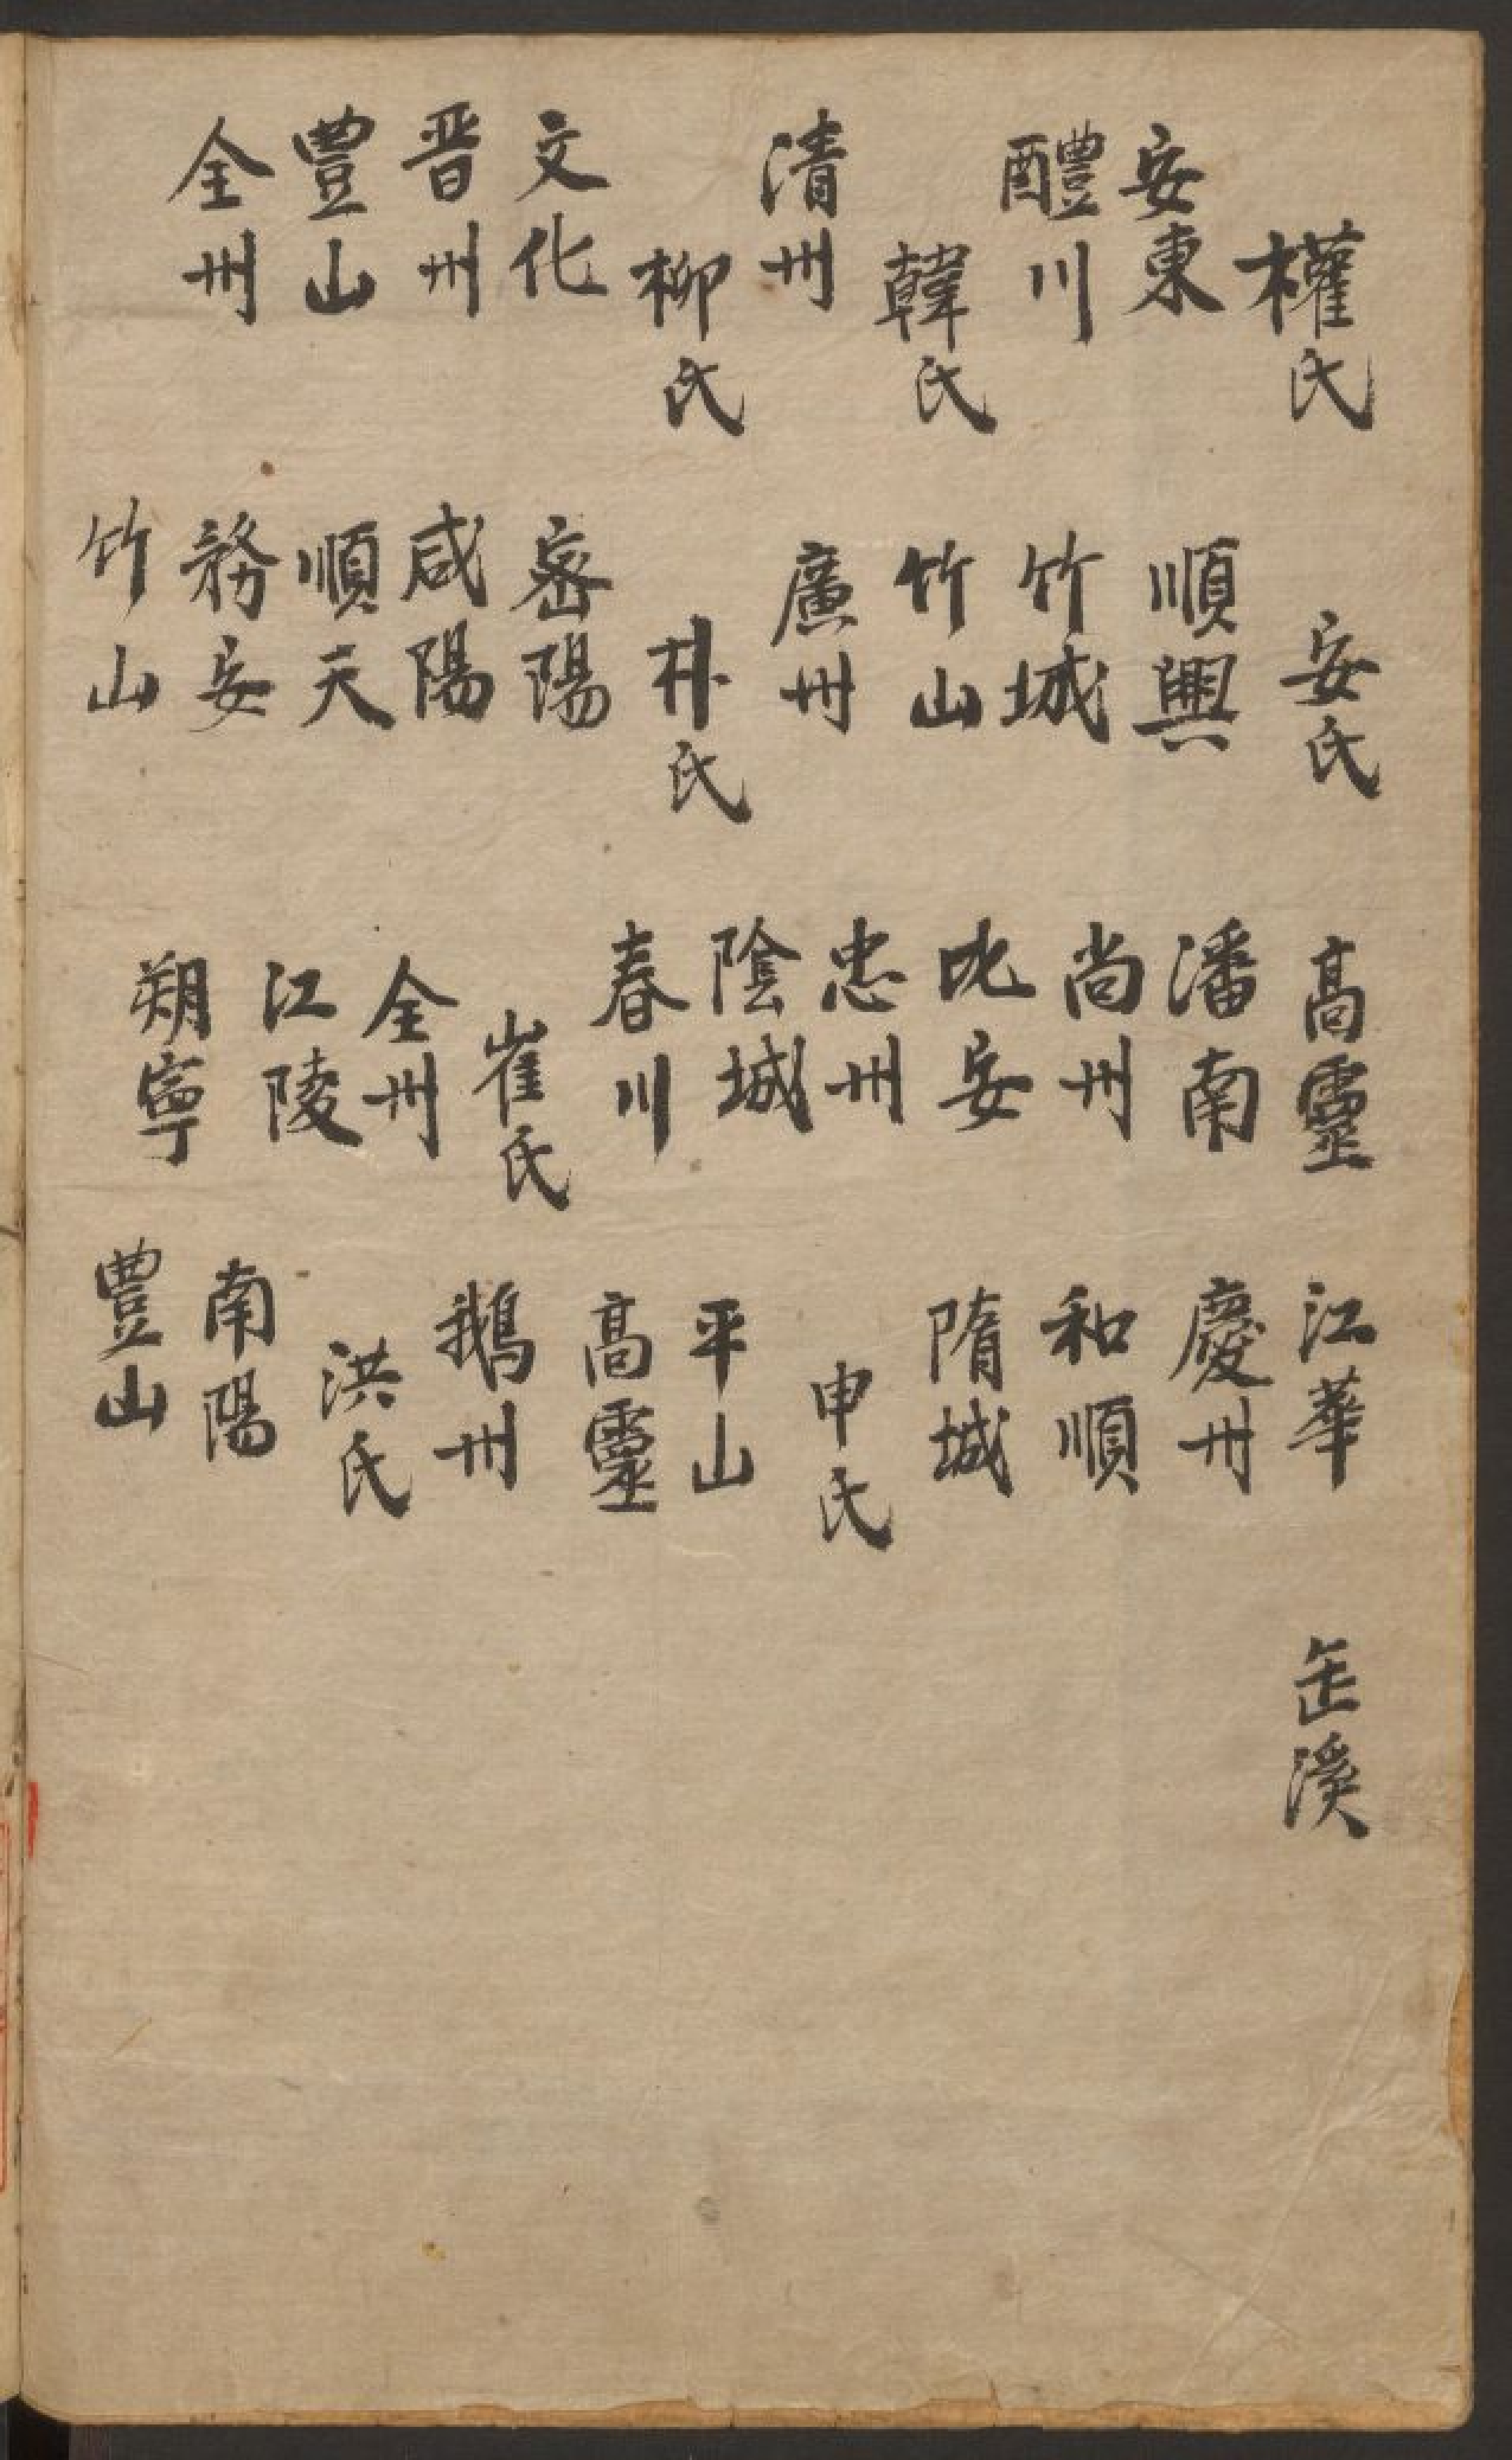 權氏
安東
醴川
韓氏
清州
柳氏
文化
晋州
豊山
全州
安氏
順興
竹城
竹山
廣州
朴氏
密陽
咸陽
順天
務安
竹山
高靈
潘南
尙州
比安
忠州
陰城
春川
崔氏
全州
江陵
朔寧
江華
慶州
和順
隋城
申氏
平山
高靈
鵝州
洪氏
南陽
豊山
缶溪